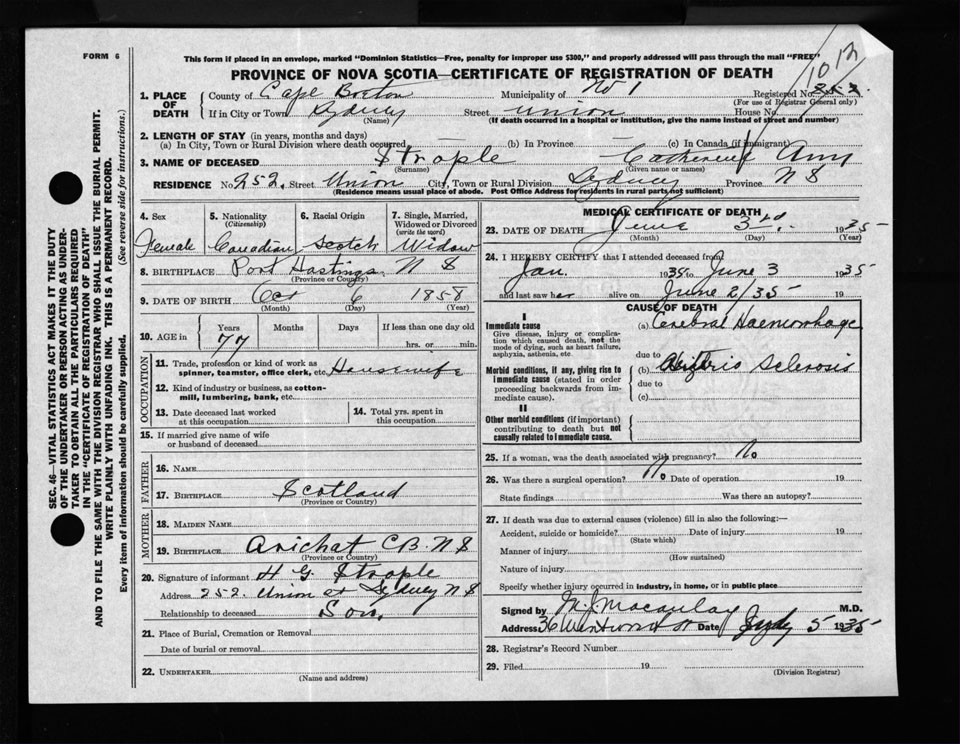 FORM 6
This form if placed in an envelope, marked "Dominion Statistics—Free, penalty for improper use $300," and properly addressed will pass through the mail "FREE"
PROVINCE OF NOVA SCOTIA—CERTIFICATE OF REGISTRATION OF DEATH
1012
1. PLACE OF DEATH
County of Cape Breton Municipality of No 1 Registered No. 252
(For use of Registrar General only)
If in City or Town Sydney Street Union House No.
(Name) (If death occurred in a hospital or institution, give the name instead of street and number)
2. LENGTH OF STAY (in years, months and days)
(a) In City, Town or Rural Division where death occurred (b) In Province (c) In Canada (if immigrant)
3. NAME OF DECEASED Strople Catherine Ann
(Surname) (Given name or names)
RESIDENCE No. 252. Street Union City, Town or Rural Division Sydney Province N S
(Residence means usual place of abode. Post Office Address for residents in rural parts not sufficient)
4. Sex 5. Nationality 6. Racial Origin 7. Single, Married, Widowed or Divorced
(Citizenship) (write the word)
Female Canadian Scotch Widow
8. BIRTHPLACE Port Hastings N S
(Province or Country)
9. DATE OF BIRTH Oct 6 1858
(Month) (Day) (Year)
10. AGE in Years Months Days If less than one day old
77 hrs. or min.
OCCUPATION
11. Trade, profession or kind of work as spinner, teamster, office clerk, etc. Housewife
12. Kind of industry or business, as cotton-mill, lumbering, bank, etc.
13. Date deceased last worked at this occupation
14. Total yrs. spent in this occupation
15. If married give name of wife or husband of deceased
FATHER
16. NAME
17. BIRTHPLACE Scotland
(Province or Country)
MOTHER
18. MAIDEN NAME
19. BIRTHPLACE Arichat C B. N S
(Province or Country)
20. Signature of informant H G Strople
Address 252. Union st Sydney N S
Relationship to deceased Son.
21. Place of Burial, Cremation or Removal
Date of burial or removal
22. UNDERTAKER
(Name and address)
MEDICAL CERTIFICATE OF DEATH
23. DATE OF DEATH June 3rd. 1935
(Month) (Day) (Year)
24. I HEREBY CERTIFY that I attended deceased from
Jan. 1935 to June 3 1935
and last saw her alive on June 2/35 19
CAUSE OF DEATH
I
Immediate cause
Give disease, injury or complication which caused death, not the mode of dying, such as heart failure, asphyxia, asthenia, etc.
(a) Cerebral Haemorrhage
due to
Morbid conditions, if any, giving rise to immediate cause (stated in order proceeding backwards from immediate cause).
(b) Sclerosis
due to
(c)
II
Other morbid conditions (if important) contributing to death but not causally related to immediate cause.
25. If a woman, was the death associated with pregnancy? No
26. Was there a surgical operation? No Date of operation 19
State findings Was there an autopsy?
27. If death was due to external causes (violence) fill in also the following:—
Accident, suicide or homicide? Date of injury 19
(State which)
Manner of injury
(How sustained)
Nature of injury
Specify whether injury occurred in industry, in home, or in public place
Signed by M. J. Macaulay M.D.
Address 36 Wentworth St Date July 5 1935
28. Registrar's Record Number
29. Filed 19
(Division Registrar)
SEC. 46—VITAL STATISTICS ACT MAKES IT THE DUTY
OF THE UNDERTAKER OR PERSON ACTING AS UNDER-
TAKER TO OBTAIN ALL THE PARTICULARS REQUIRED
IN THE "CERTIFICATE OF REGISTRATION OF DEATH"
AND TO FILE THE SAME WITH THE DIVISION REGISTRAR WHO SHALL ISSUE THE BURIAL PERMIT.
WRITE PLAINLY WITH UNFADING INK. THIS IS A PERMANENT RECORD.
Every item of information should be carefully supplied. (See reverse side for instructions.)